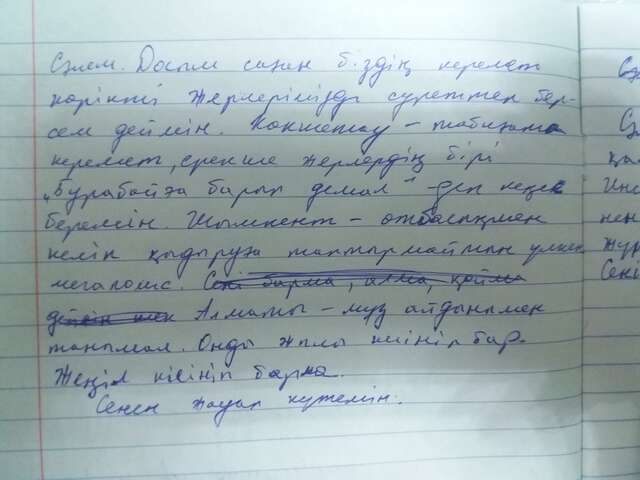 Сәлем. Досым саған біздің керемет
көрікті жерлерімізді суреттеп бер-
сем деймін. Көкшетау – табиғаты
керемет, ерекше жерлердің бірі
„Бурабайға барып демал" – деп кеңес
беремін. Шымкент – отбасыңмен
келіп қыдыруға таптырмайтын үлкен
мегаполис. Сені барма, алма, қойма
Алматы – мұз айдынымен
танымал. Онда жылы киініп бар.
Жеңіл киініп барма.
Сенен жауап күтемін.
С
Сә
қа
Ине
нен
жүр
Сені